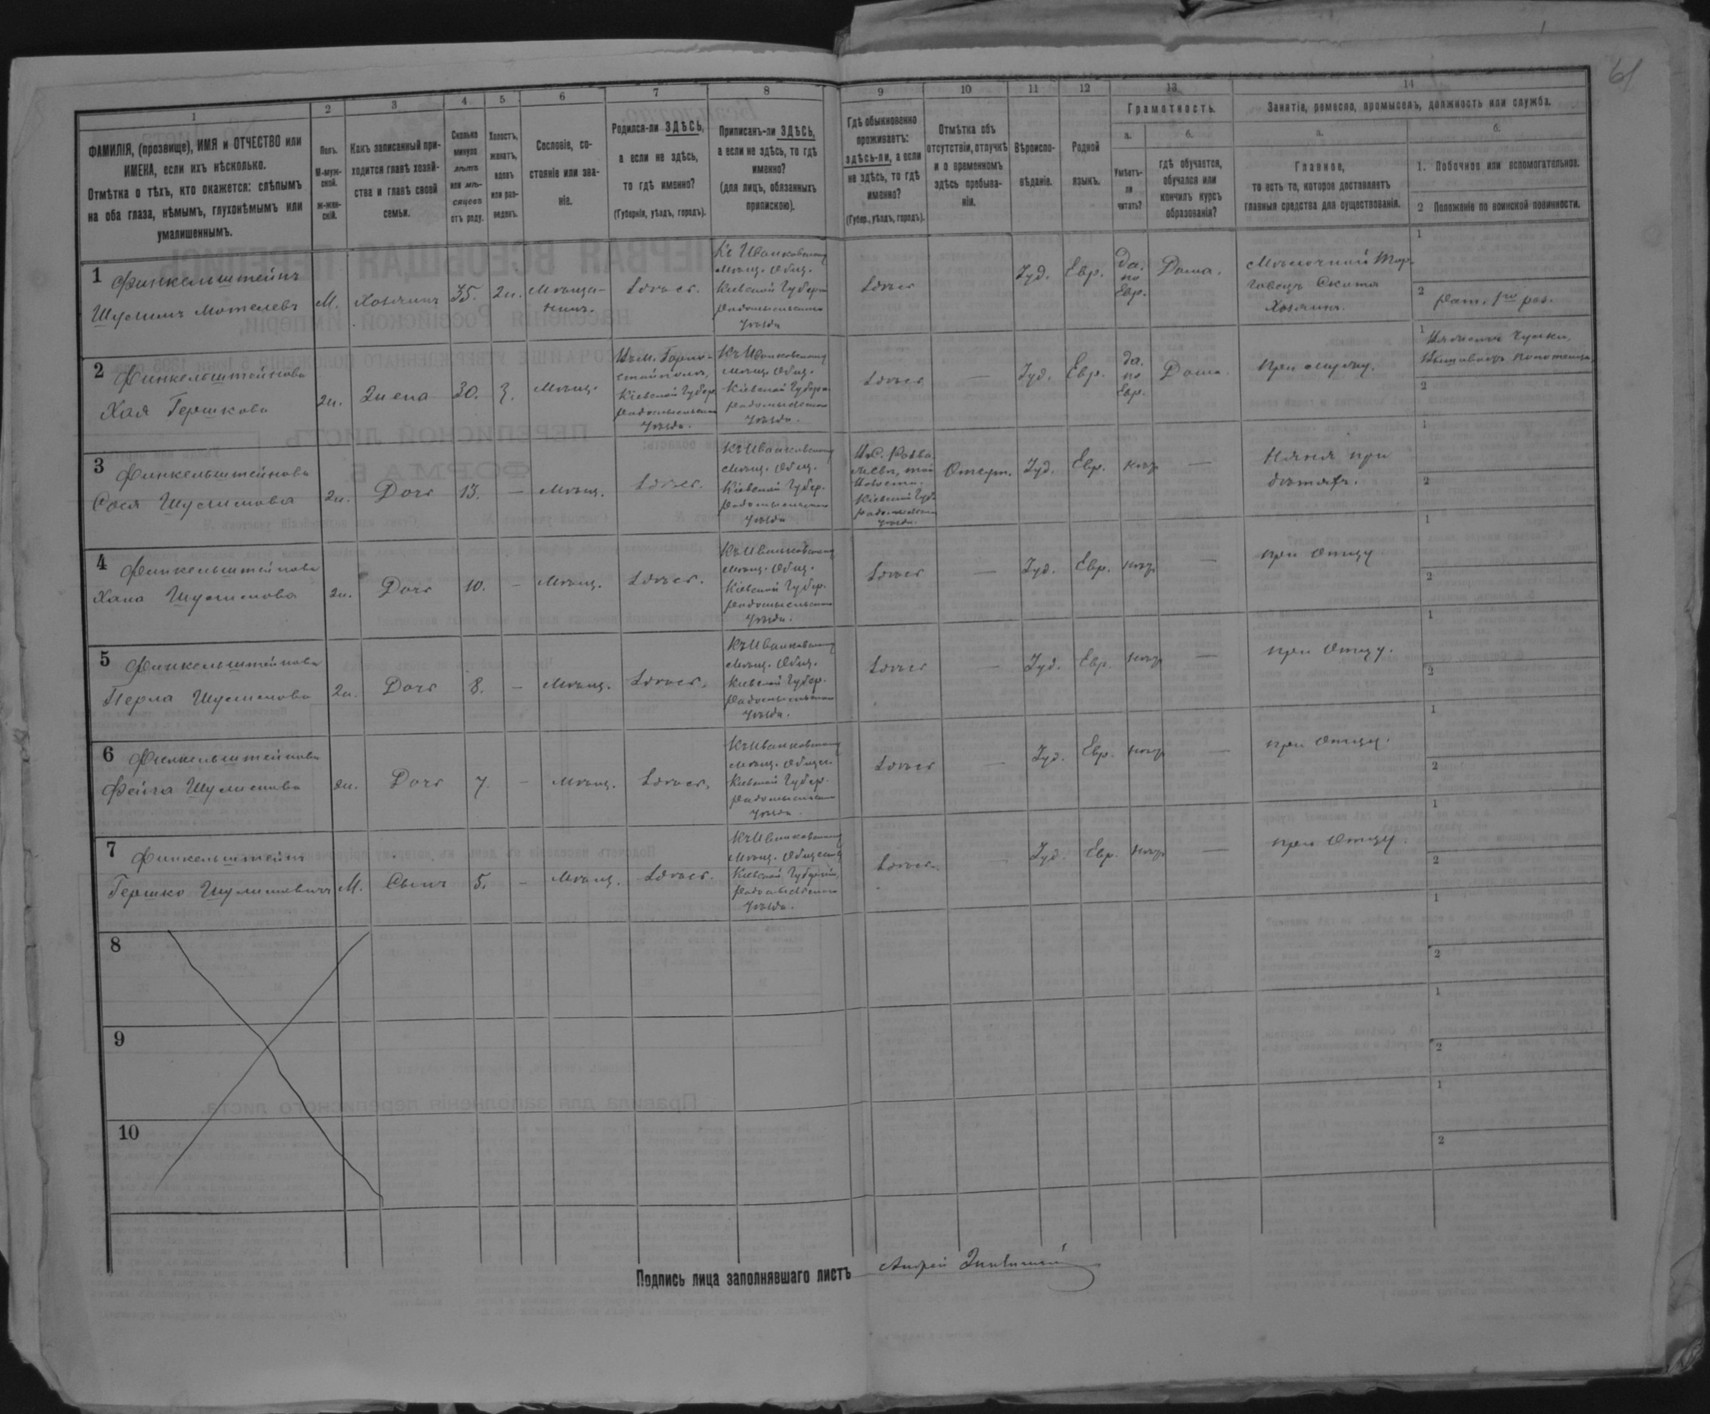 61
1 2 3 4 5 6 7 8 9 10 11 12 13 14
ФАМИЛІЯ, (прозвище), ИМЯ и ОТЧЕСТВО или
ИМЕНА, если ихъ нѣсколько.
Отмѣтка о тѣхъ, кто окажется: слѣпымъ
на оба глаза, нѣмымъ, глухонѣмымъ или
умалишеннымъ.
Полъ.
М-муж-
ской.
Ж-жен-
скій.
Какъ записанный при-
ходится главѣ хозяй-
ства и главѣ своей
семьи.
Сколько
минуло
лѣтъ
или мѣ-
сяцевъ
отъ роду.
Холостъ,
женатъ,
вдовъ
или раз-
веденъ.
Сословіе, со-
стояніе или зва-
ніе.
Родился-ли ЗДѢСЬ,
а если не здѣсь,
то гдѣ именно?
(Губернія, уѣздъ, городъ).
Приписанъ-ли ЗДѢСЬ,
а если не здѣсь, то гдѣ
именно?
(для лицъ, обязанныхъ
припискою).
Гдѣ обыкновенно
проживаетъ:
здѣсь-ли, а если
не здѣсь, то гдѣ
именно?
(Губер., уѣздъ, городъ).
Отмѣтка объ
отсутствіи, отлучкѣ
и о временномъ
здѣсь пребыва-
ніи.
Вѣроиспо-
вѣданіе.
Родной
языкъ.
Грамотность.
а.
Умѣетъ-
ли
читать?
б.
гдѣ обучается,
обучался или
кончилъ курсъ
образованія?
Занятія, ремесло, промыселъ, должность или служба.
а.
Главное,
то есть то, которое доставляетъ
главныя средства для существованія.
б.
1. Побочное или вспомогательное.
2 Положеніе по воинской повинности.
1 Финкельштейнъ
Шулимъ Мотелевъ
М.
Хозяинъ
35.
Ж.
Мѣща-
нинъ.
Здѣсь.
Къ Иванковскому
Мѣщ. Общ.
Кіевской Губерн
Радомысльскаго
Уѣзда
Здѣсь
Іуд.
Евр.
Да.
по
Евр.
Дома.
Мѣлочной Тор-
говецъ Скита
Хозяинъ.
1
2 Рат. 1го раз.
2 Финкельштейнова
Хая Гершкова
Ж.
Жена
30.
З.
Мѣщ.
Къ Иванковскому
Мѣщ. Общ.
Кіевской Губерн
Радомысльскаго
Уѣзда.
Здѣсь
—
Іуд.
Евр.
Да.
по
Евр.
Дома.
при мужу.
1
2
3 Финкельштейнова
Сося Шулимова
Ж.
Дочь
13.
—
Мѣщ.
Здѣсь.
Къ Иванковскому
Мѣщ. Общ.
Кіевской Губер.
Радомысльскаго
Уѣзда
Отсут.
Іуд.
Евр.
нѣтъ
—
Няня при
дѣтяхъ.
1
2
4 Финкельштейнова
Хана Шулимова
Ж.
Дочь
10.
—
Мѣщ.
Здѣсь.
Къ Иванковскому
Мѣщ. Общ.
Кіевской Губер.
Радомысльскаго
Уѣзда.
Здѣсь
—
Іуд.
Евр.
нѣтъ
—
при Отцу
1
2
5 Финкельштейнова
Перла Шулимова
Ж.
Дочь
8.
—
Мѣщ.
Здѣсь.
Къ Иванковскому
Мѣщ. Общ.
Кіевской Губер.
Радомысльскаго
Уѣзда.
Здѣсь
—
Іуд.
Евр.
нѣтъ
—
при Отцу.
1
2
6 Финкельштейнова
Фейга Шулимова
Ж.
Дочь
7.
—
Мѣщ.
Здѣсь.
Къ Иванковскому
Мѣщ. Общ.
Кіевской Губер.
Радомысльскаго
Уѣзда.
Здѣсь
—
Іуд.
Евр.
нѣтъ
—
при Отцу.
1
2
7 Финкельштейнъ
Гершко Шулимовичъ
М.
Сынъ
5.
—
Мѣщ.
Здѣсь.
Къ Иванковскому
Мѣщ. Общ.
Кіевской Губерніи,
Радомысльскаго
Уѣзда.
Здѣсь.
Іуд.
Евр.
нѣтъ
—
при Отцу.
1
2
8
1
2
9
1
2
10
1
2
Подпись лица заполнявшаго листъ Андрей